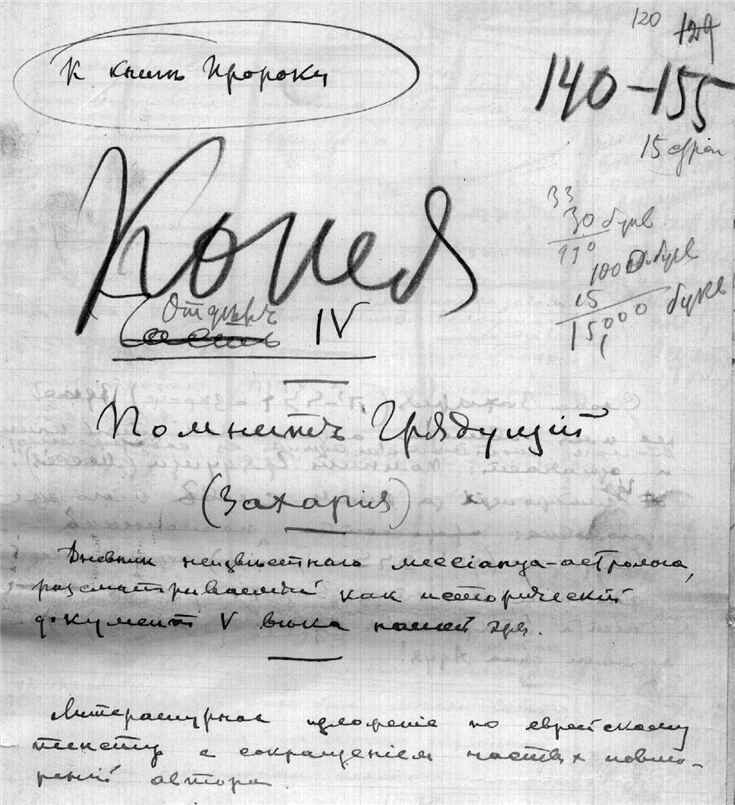 120 129
К книгѣ Пророки
140-155
15 стран
Копея
33
30 букв
110
1000 букв
15
15000 букв
Отдѣлъ
Часть IV
Помнитъ Грядущій
(Захарія)
Дневник неизвѣстнаго мессіанца-астролога,
разсматриваемый как историческій
документ V вѣка нашей эры.
Литературное изложеніе по еврейскому
тексту с сокращеніем частых повто-
реній автора